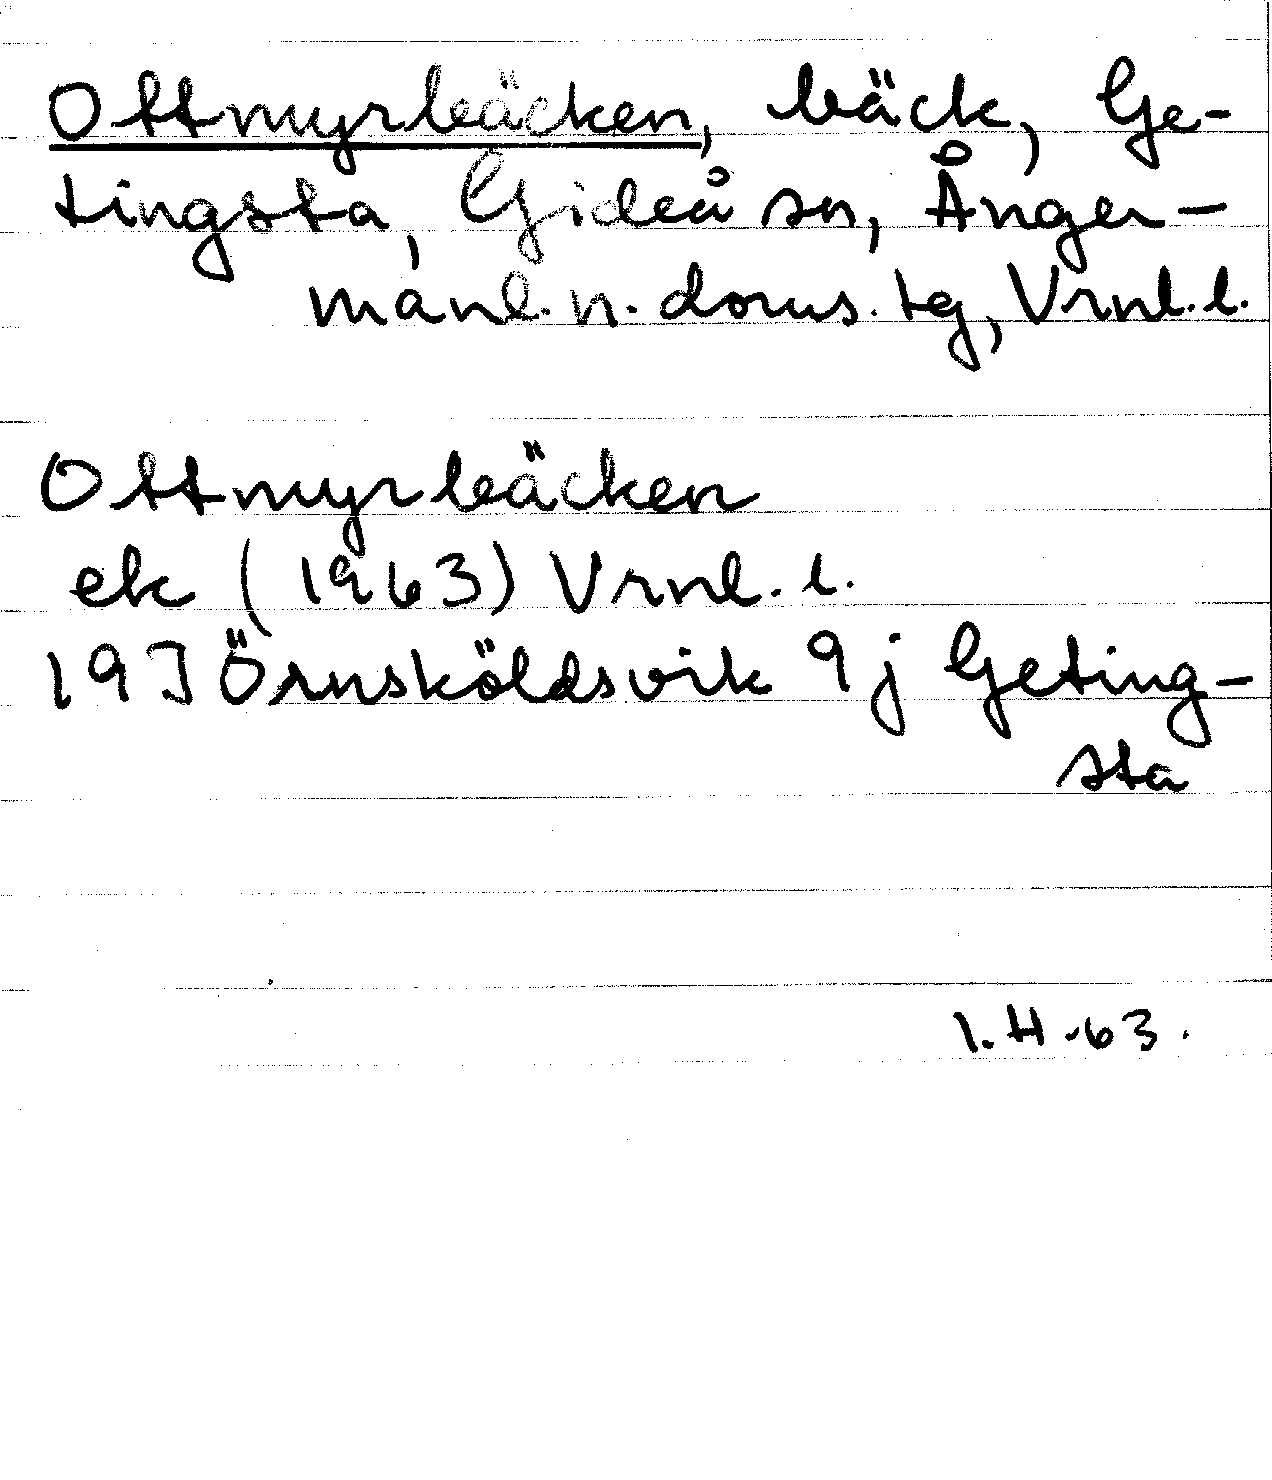 Ottmyrbäcken, bäck, Ge-
tingsta, Gideå sn, Ånger-
manl. n. doms. tg, Vrnl. l.
Ottmyrbäcken
ek (1963) Vrnl. l.
19J Örnsköldsvik 9j Geting-
sta
1. H -63.